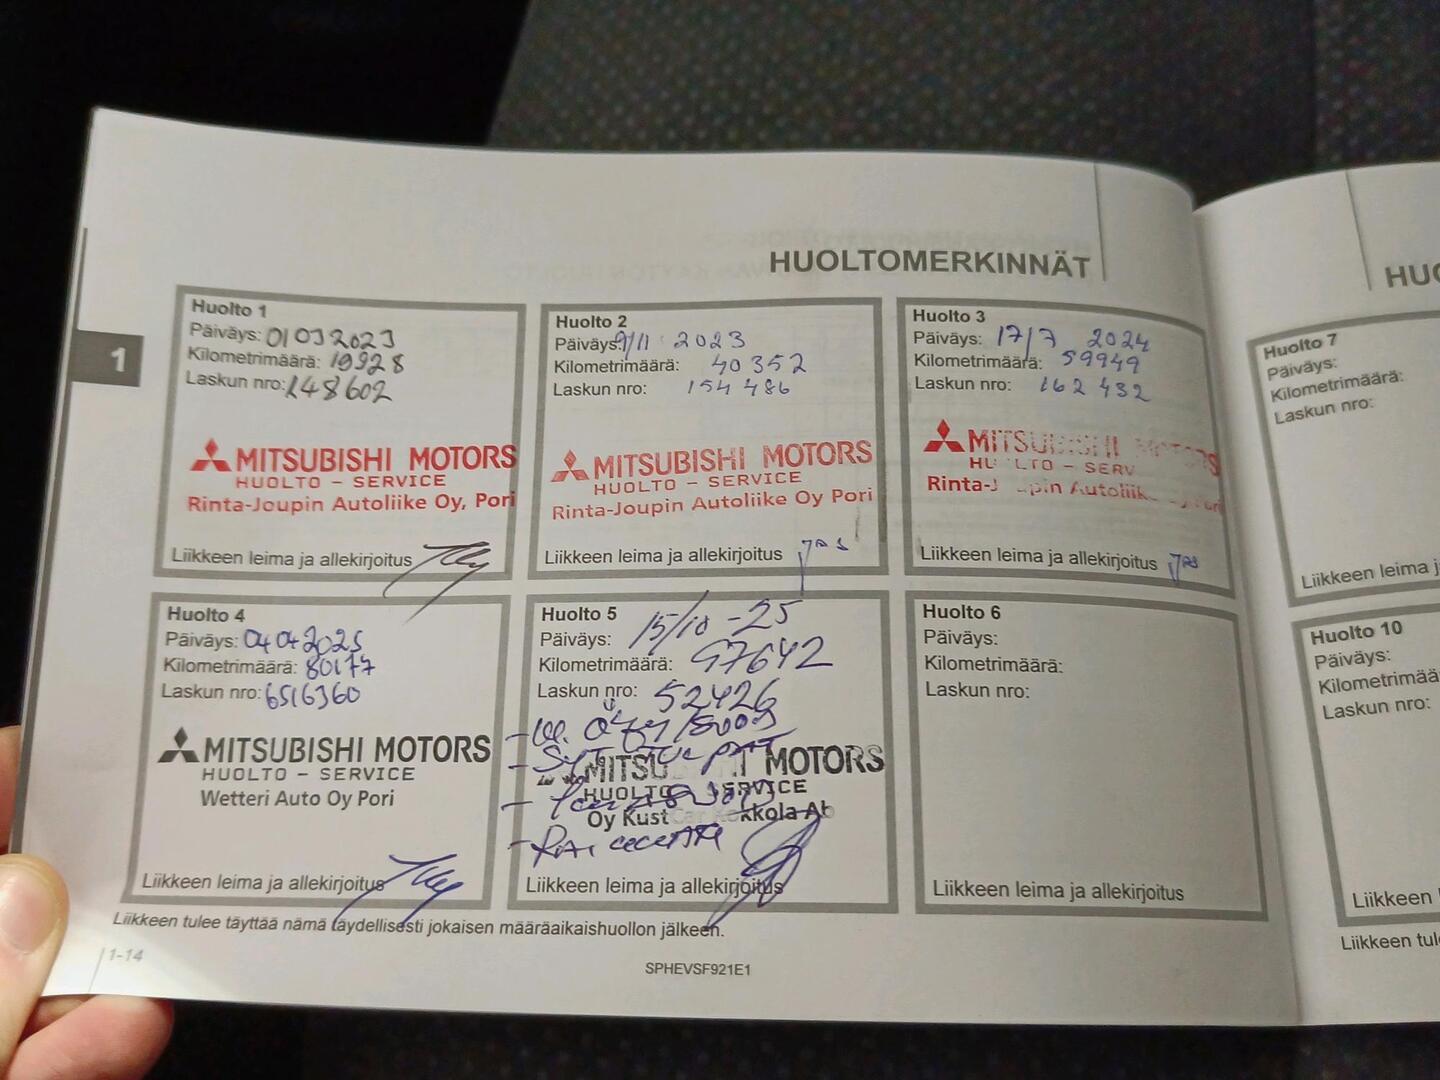 HUOLTOMERKINNÄT
1
Huolto 1
Päiväys: 01 03 2023
Kilometrimäärä: 19928
Laskun nro: 148602
MITSUBISHI MOTORS
HUOLTO - SERVICE
Rinta-Joupin Autoliike Oy, Pori
Liikkeen leima ja allekirjoitus
Huolto 2
Päiväys: 9/11 2023
Kilometrimäärä: 40352
Laskun nro: 154 486
MITSUBISHI MOTORS
HUOLTO - SERVICE
Rinta-Joupin Autoliike Oy Pori
Liikkeen leima ja allekirjoitus
Huolto 3
Päiväys: 17/7 2024
Kilometrimäärä: 59949
Laskun nro: 162 432
MITSUBISHI MOTORS
HUOLTO - SERV
Rinta-Joupin Autoliik Oy Pori
Liikkeen leima ja allekirjoitus
Huolto 4
Päiväys: 04 04 2025
Kilometrimäärä: 80177
Laskun nro: 6516360
MITSUBISHI MOTORS
HUOLTO - SERVICE
Wetteri Auto Oy Pori
Liikkeen leima ja allekirjoitus
Huolto 5
Päiväys: 15/10 -25
Kilometrimäärä: 97642
Laskun nro: 52426
MITSU I MOTORS
HUOLTO SERVICE
Oy Kust Car Kokkola Ab
Liikkeen leima ja allekirjoitus
Huolto 6
Päiväys:
Kilometrimäärä:
Laskun nro:
Liikkeen leima ja allekirjoitus
Liikkeen tulee täyttää nämä täydellisesti jokaisen määräaikaishuollon jälkeen.
1-14
SPHEVSF921E1
HUO
Huolto 7
Päiväys:
Kilometrimäärä:
Laskun nro:
Liikkeen leima j
Huolto 10
Päiväys:
Kilometrimää
Laskun nro:
Liikkeen
Liikkeen tul